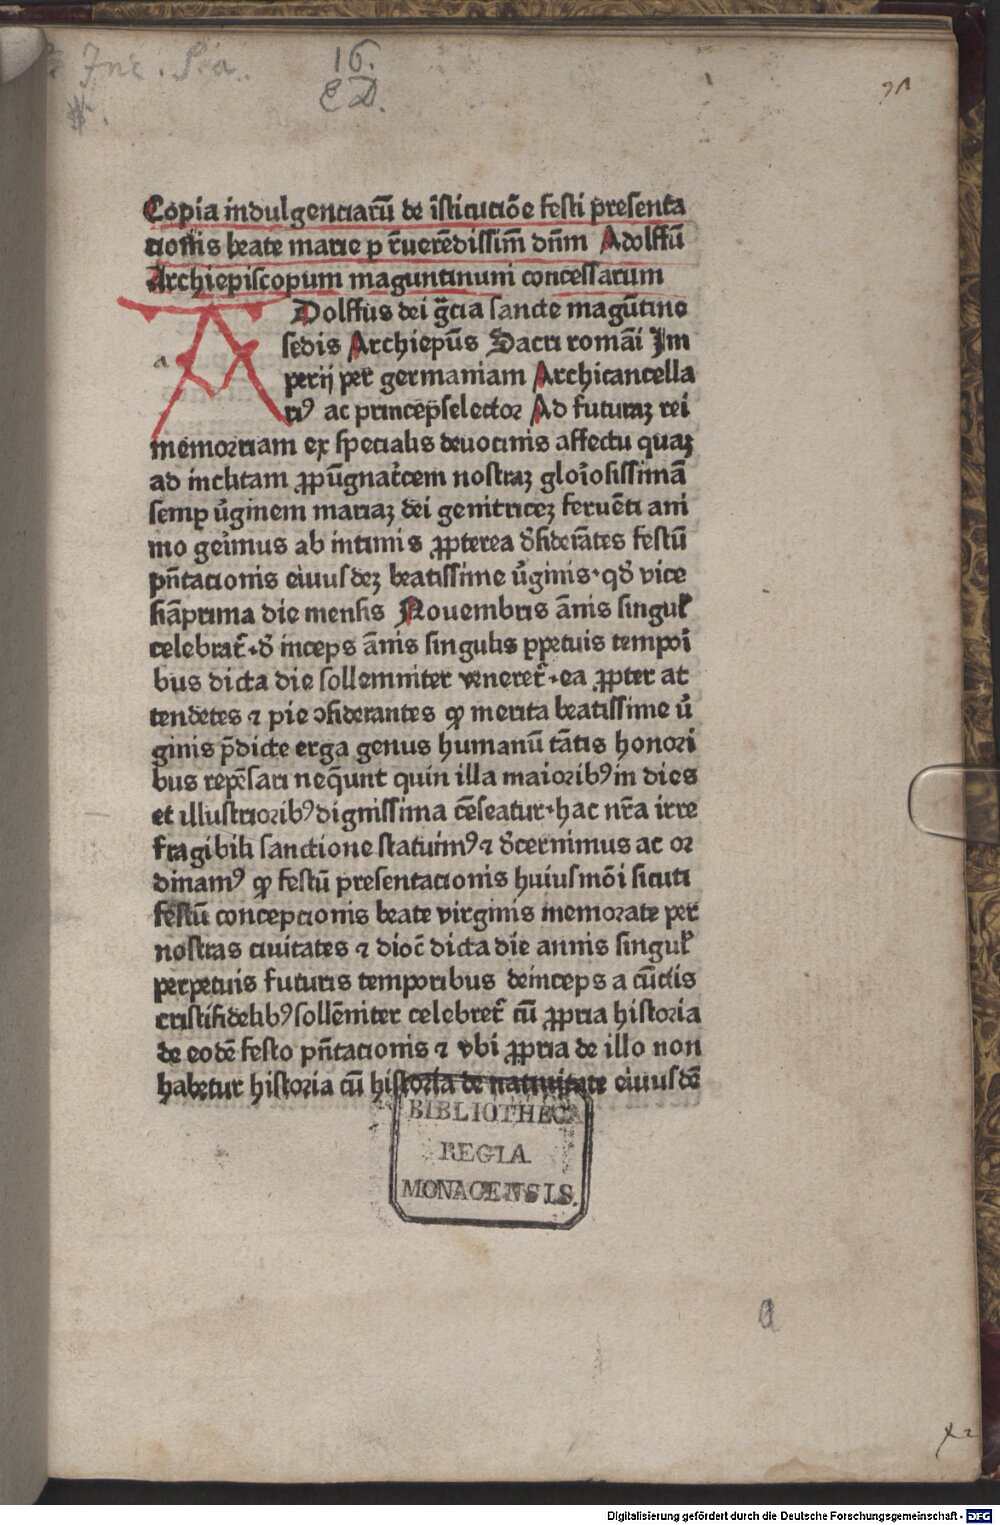 Inc. s.a.
16.
ED.
Copia indulgenciarū de īsticucōe festi p̄senta
tionis beate marie p r̄uerēdissim̄ dn̄m Adolffū
Archiepiscopum maguntinum concessarum
a
ADolffus dei gr̄cia sancte magūtine
sedis Archiep̄us Sacri romāi Im
perij per germaniam Archicancella
riꝰ ac princep̄selector Ad futuraꝫ rei
memoriam ex specialis deuocinis affectu quaꝫ
ad inclitam ꝓpūgnatͥcem nostraꝫ gloͥosissimā
semꝑ v̓ginem mariaꝫ dei genitriceꝫ feruēti ani
mo geͥmus ab intimis ꝓpterea ꝯ̓siderātes festū
pn̄tacionis eiuusdeꝫ beatissime v̓ginis·qđ vice
siāprima die mensis Nouembris ānis singul̓
celebrat̄·đ inceps ānis singulis ꝑpetuis tempoͥ
bus dicta die sollemniter veneret̄·ea ꝓpter at
tendētes ⁊ pie ꝯsiderantes ꝙ merita beatissime v̓
ginis p̄dicte erga genus humanū tātis honori
bus rep̄sari neq̄unt quin illa maioribꝰ in dies
et illustrioribꝰ dignissima cēseatur·hac nr̄a irre
fragibili sanctione statuimꝰ ⁊ đcernimus ac or
dinamꝰ ꝙ festū presentacionis huiusmōi sicuti
festū concepcionis beate virginis memorate per
nostras ciuitates ⁊ dioc̄ dicta die annis singul̓
perpetuis futuris temporibus deinceps a cūctis
cristifidelibꝰ sollēniter celebret̄ cū ꝓpria historia
de eodē festo pn̄tacionis ⁊ vbi ꝓpria de illo non
habetur historia cū historia de natiuitate eiuusdē
BIBLIOTHECA
REGIA
MONACENSIS.
a
Digitalisierung gefördert durch die Deutsche Forschungsgemeinschaft - DFG